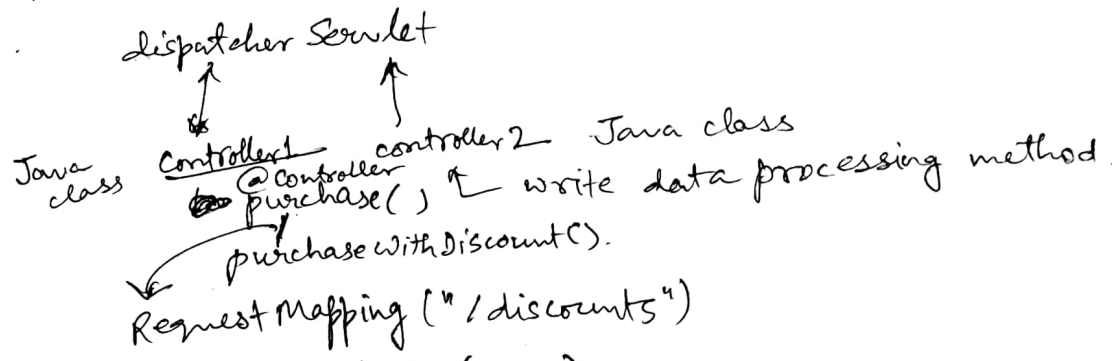 dispatcher Servlet
Java class Controller1 controller2 Java class
@Controller
purchase() write data processing method.
purchaseWithDiscount().
RequestMapping ("/discounts")